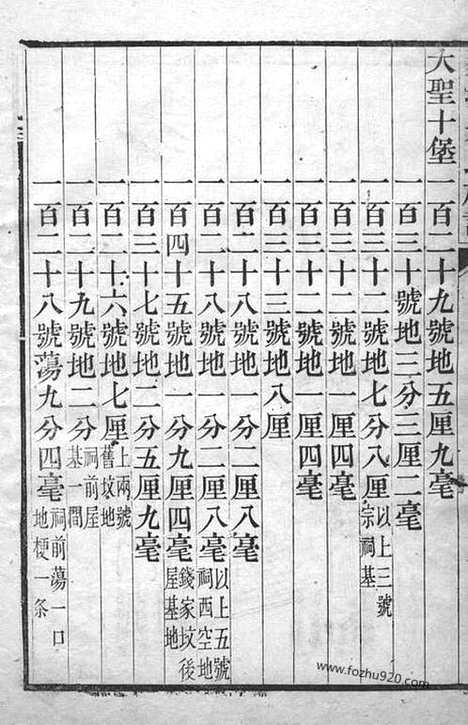 大聖十堡一百二十九號地五厘九毫
一百三十號地三分三厘二毫
一百三十二號地七分八厘以上三號宗祠基
一百三十二號地一厘四毫
一百三十二號地一厘四毫
一百三十三號地八厘
一百二十八號地一分二厘八毫
一百二十八號地一分二厘八毫以上五號祠西空地
一百四十五號地一分九厘四毫錢家坟後屋基地
一百三十七號地二分五厘九毫
一百二十六號地七厘上兩號舊坟地
一百二十九號地二分祠前屋基一間
一百二十八號蕩九分四毫祠前蕩一口地梗一条
www.fozhu920.com